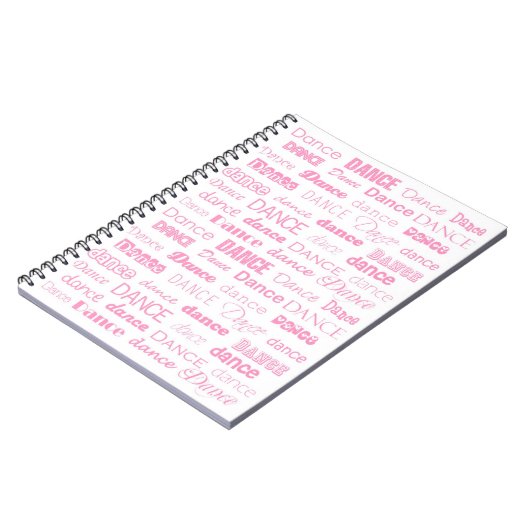 Dance DANCE Dance Dance
DANCE Dance Dance DANCE
Dance Dance dance DANCE
Dance DANCE Dance DANCE
dance dance dance dance
Dance DANCE dance Dance
dance dance DANCE Dance
DANCE Dance dance DANCE
Dance DANCE Dance dance
Dance Dance DANCE DANCE
dance dance dance Dance
dance DANCE dance
Dance dance Dance